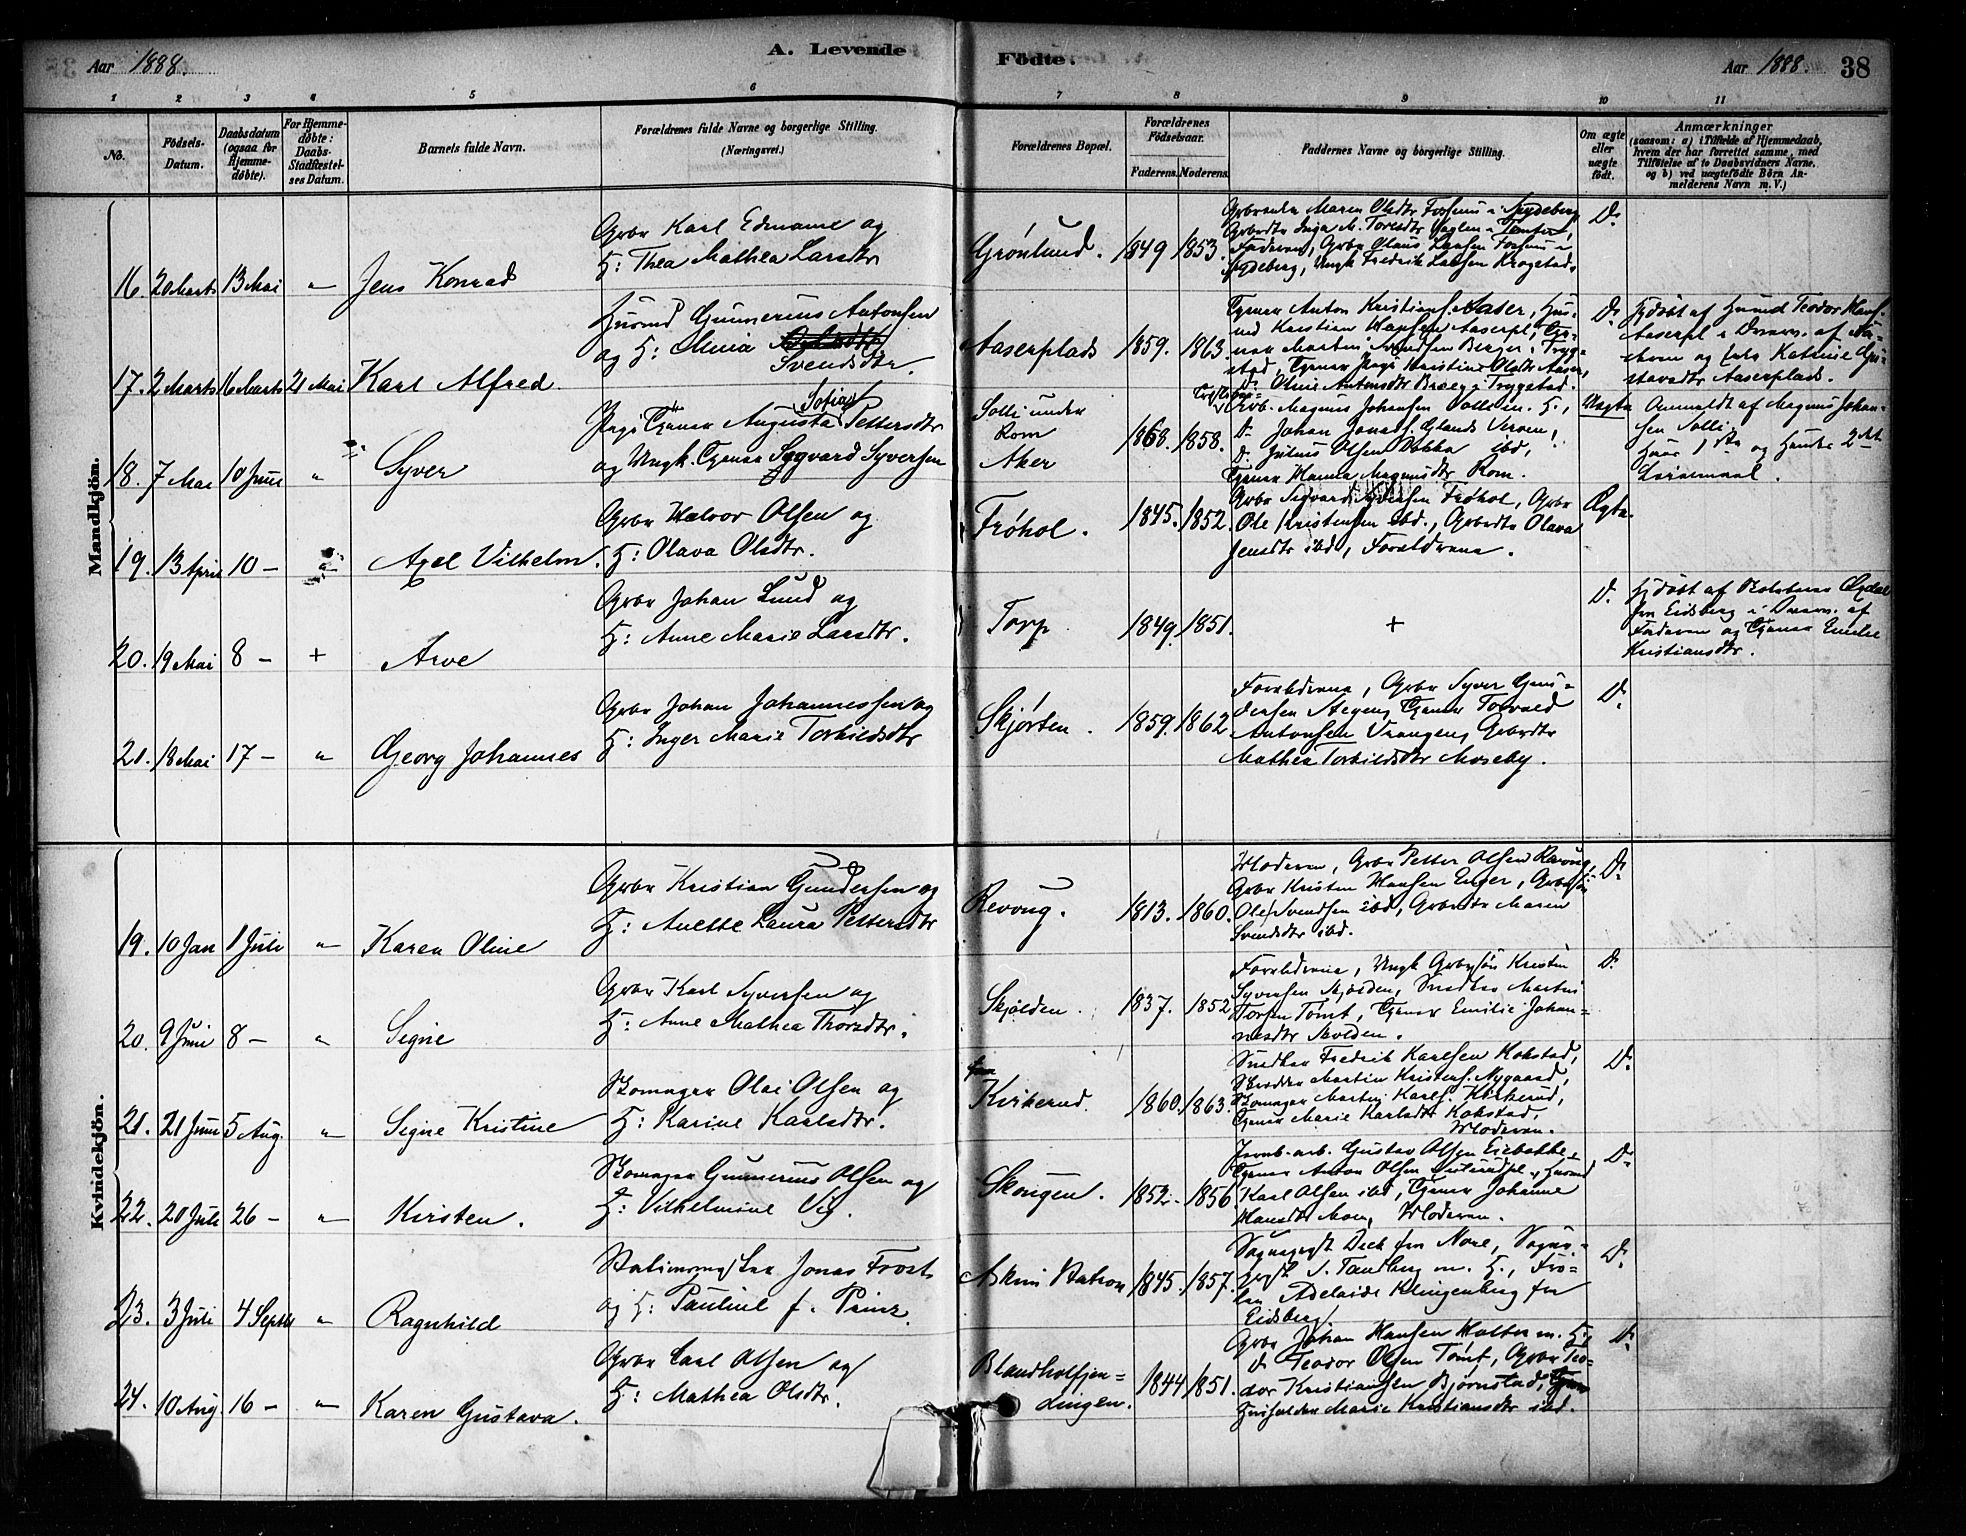 Aar 1888.
A. Levende
Fødte.
Aar 1888.
38
1 2 3 4 5 6 7 8 9 10 11
No.
Fødsels-
Datum.
Daabsdatum
(ogsaa for
Hjemme-
døbte).
For Hjemme-
døbte:
Daabs-
Stadfæstel-
ses Datum.
Barnets fulde Navn.
Forældrenes fulde Navne og borgerlige Stilling.
(Næringsvei.)
Forældrenes Bopæl.
Forældrenes
Fødselsaar.
Faderens. Moderens.
Faddernes Navne og borgerlige Stilling.
Om ægte
eller
uægte
født.
Anmærkninger
(saasom: a) i Tilfælde af Hjemmedaab,
hvem der har forrettet samme, med
Tilføielse af to Daabsvidners Navne.
og b) ved uægtefødte Børn An-
melderens Navn m. V.)
Mandkjøn.
16. 20 Marts 13 Mai " Jens Konrad
Grbr Karl Edmann og
H: Thea Mathea Larsdtr
Grønlund. 1849 1853.
Maren Olsdtr
Faderen, Grbr Claus Larsen
Ungk Fredrik Larsen Krogstad.
D:
17. 2 Marts 16 Marts 21 Mai Karl Alfred
Husmd Gunnerius Antonsen
og H: Olina
Svendsdtr.
Aaserplads 1859. 1863.
Tjener Anton Aaser, Hus-
md Kristian Hansen Aaserpl,
Berger i Tryg-
stad, Tjener Pige Kristine Olsdtr Aaser,
D: Antonsdtr i Trygstad.
D:
Hjdøbt af Husmd Teodor
Aaserpl
og Katrine Gu-
stavsdtr Aaserplads.
18. 7 Mai 10 Juni " Syver
Sofia
Pige Tjener Augusta Pettersdtr
og Ungk. Tjener Sigvard Syversen
Solli under
Rom
Aker
1868. 1858.
Magnus Johansen Solli m. H.,
D:
D: Julius Olsen ibd,
Tjener Hanna Magnusdtr Rom.
Uægte
Anmeldt af Magnus Johan-
sen Solli.
Hans 1ste og Hendes 2det
Leiermaal.
19. 13 April 10 – " Axel Vilhelm.
Grbr Halvor Olsen og
H: Olava Olsdtr.
Frøhol. 1845. 1852.
Grbr Sigvard Frøhol, Grbr
Ole Kristensen ibd., Grbrdtr Olava
Jensdtr ibd, Forældrene.
Ægte.
20. 19 Mai 8 – + Arve
Grbr Johan Lund og
H: Anne Marie Larsdtr.
Torp 1849. 1851.
+
D:
Hjdøbt af
fra Eidsberg i af
Faderen og Tjener Emilie
Kristiansdtr.
21. 18 Mai 17 – " Georg Johannes
Grbr Johan Johannessen og
H: Inger Marie Torkildsdtr
Skjørten. 1859. 1862
Forældrene, Grbr Syver Gun-
dersen Tjener Torvald
Antonsen Vrangen, Grbrdtr
Mathea Torkildsdtr Moseby.
D:
Kvindekjøn.
19. 10 Jan 1 Juli " Karen Oline
Grbr Kristian Gundersen og
H: Anette Laura Pettersdtr
Revoug. 1813. 1860.
Moderen, Grbr Petter Olsen Revoug,
Grbr Kristen Hansen Enger, Grbrsøn
Ole Svendsen ibd, Grbrdtr Maren
Svendsdtr ibd.
D:
20. 9 Juni 8 – " Signe
Grbr Karl Syversen og
H: Anne Mathea Thorsdtr.
Skjolden. 1837. 1852
Forældrene, Ungk Grbrsøn Kristen
Syversen Skjolden, Snedker Martin
Torsen Tomt, Tjener Emilie Johan-
nesdtr Skolden.
D:
21. 21 Juni 5 Aug. " Signe Kristine
Skomager Olai Olsen og
H: Karine Karlsdtr.
Kirkerud. 1860. 1863.
Snedker Fredrik Karlsen Kokstad,
Skrædder Martin Kristens. Nygaard,
Skomager Martin Karls. Kirkerud,
Tjener Marie Karlsdtr Kokstad,
Moderen.
D:
22. 20 Juli 26 – " Kirsten.
Skomager Gunnerius Olsen og
H: Vilhelmine Vig.
Skougen. 1852. 1856.
Jernb. arb. Gustav Olsen
Tjener Anton Olsen Husmd
Karl Olsen ibd, Tjener Johanne
Hansdtr Moen, Moderen.
D:
23. 3 Juli 4 Septbr " Ragnhild
Stationsmester Jonas Frost
og H: Pauline f. Prinz.
Askim Station 1845. 1857.
Sogneprest Deck fra Nore, Sogne-
prest J. Tandberg m. H., Frø-
ken Adelaide Klingenberg fra
Eidsberg.
D:
24. 10 Aug 16 – " Karen Gustava.
Grbr Carl Olsen og
H: Mathea Olsdtr.
Blandholfjen-
dingen.
1844 1851.
Grbr Johan Hansen Holter m. H.,
D: Teodor Olsen Tomt, Grbr Teo-
dor Kristiansen Bjørnstad,
Marie Kristiansdtr ibd.
D: